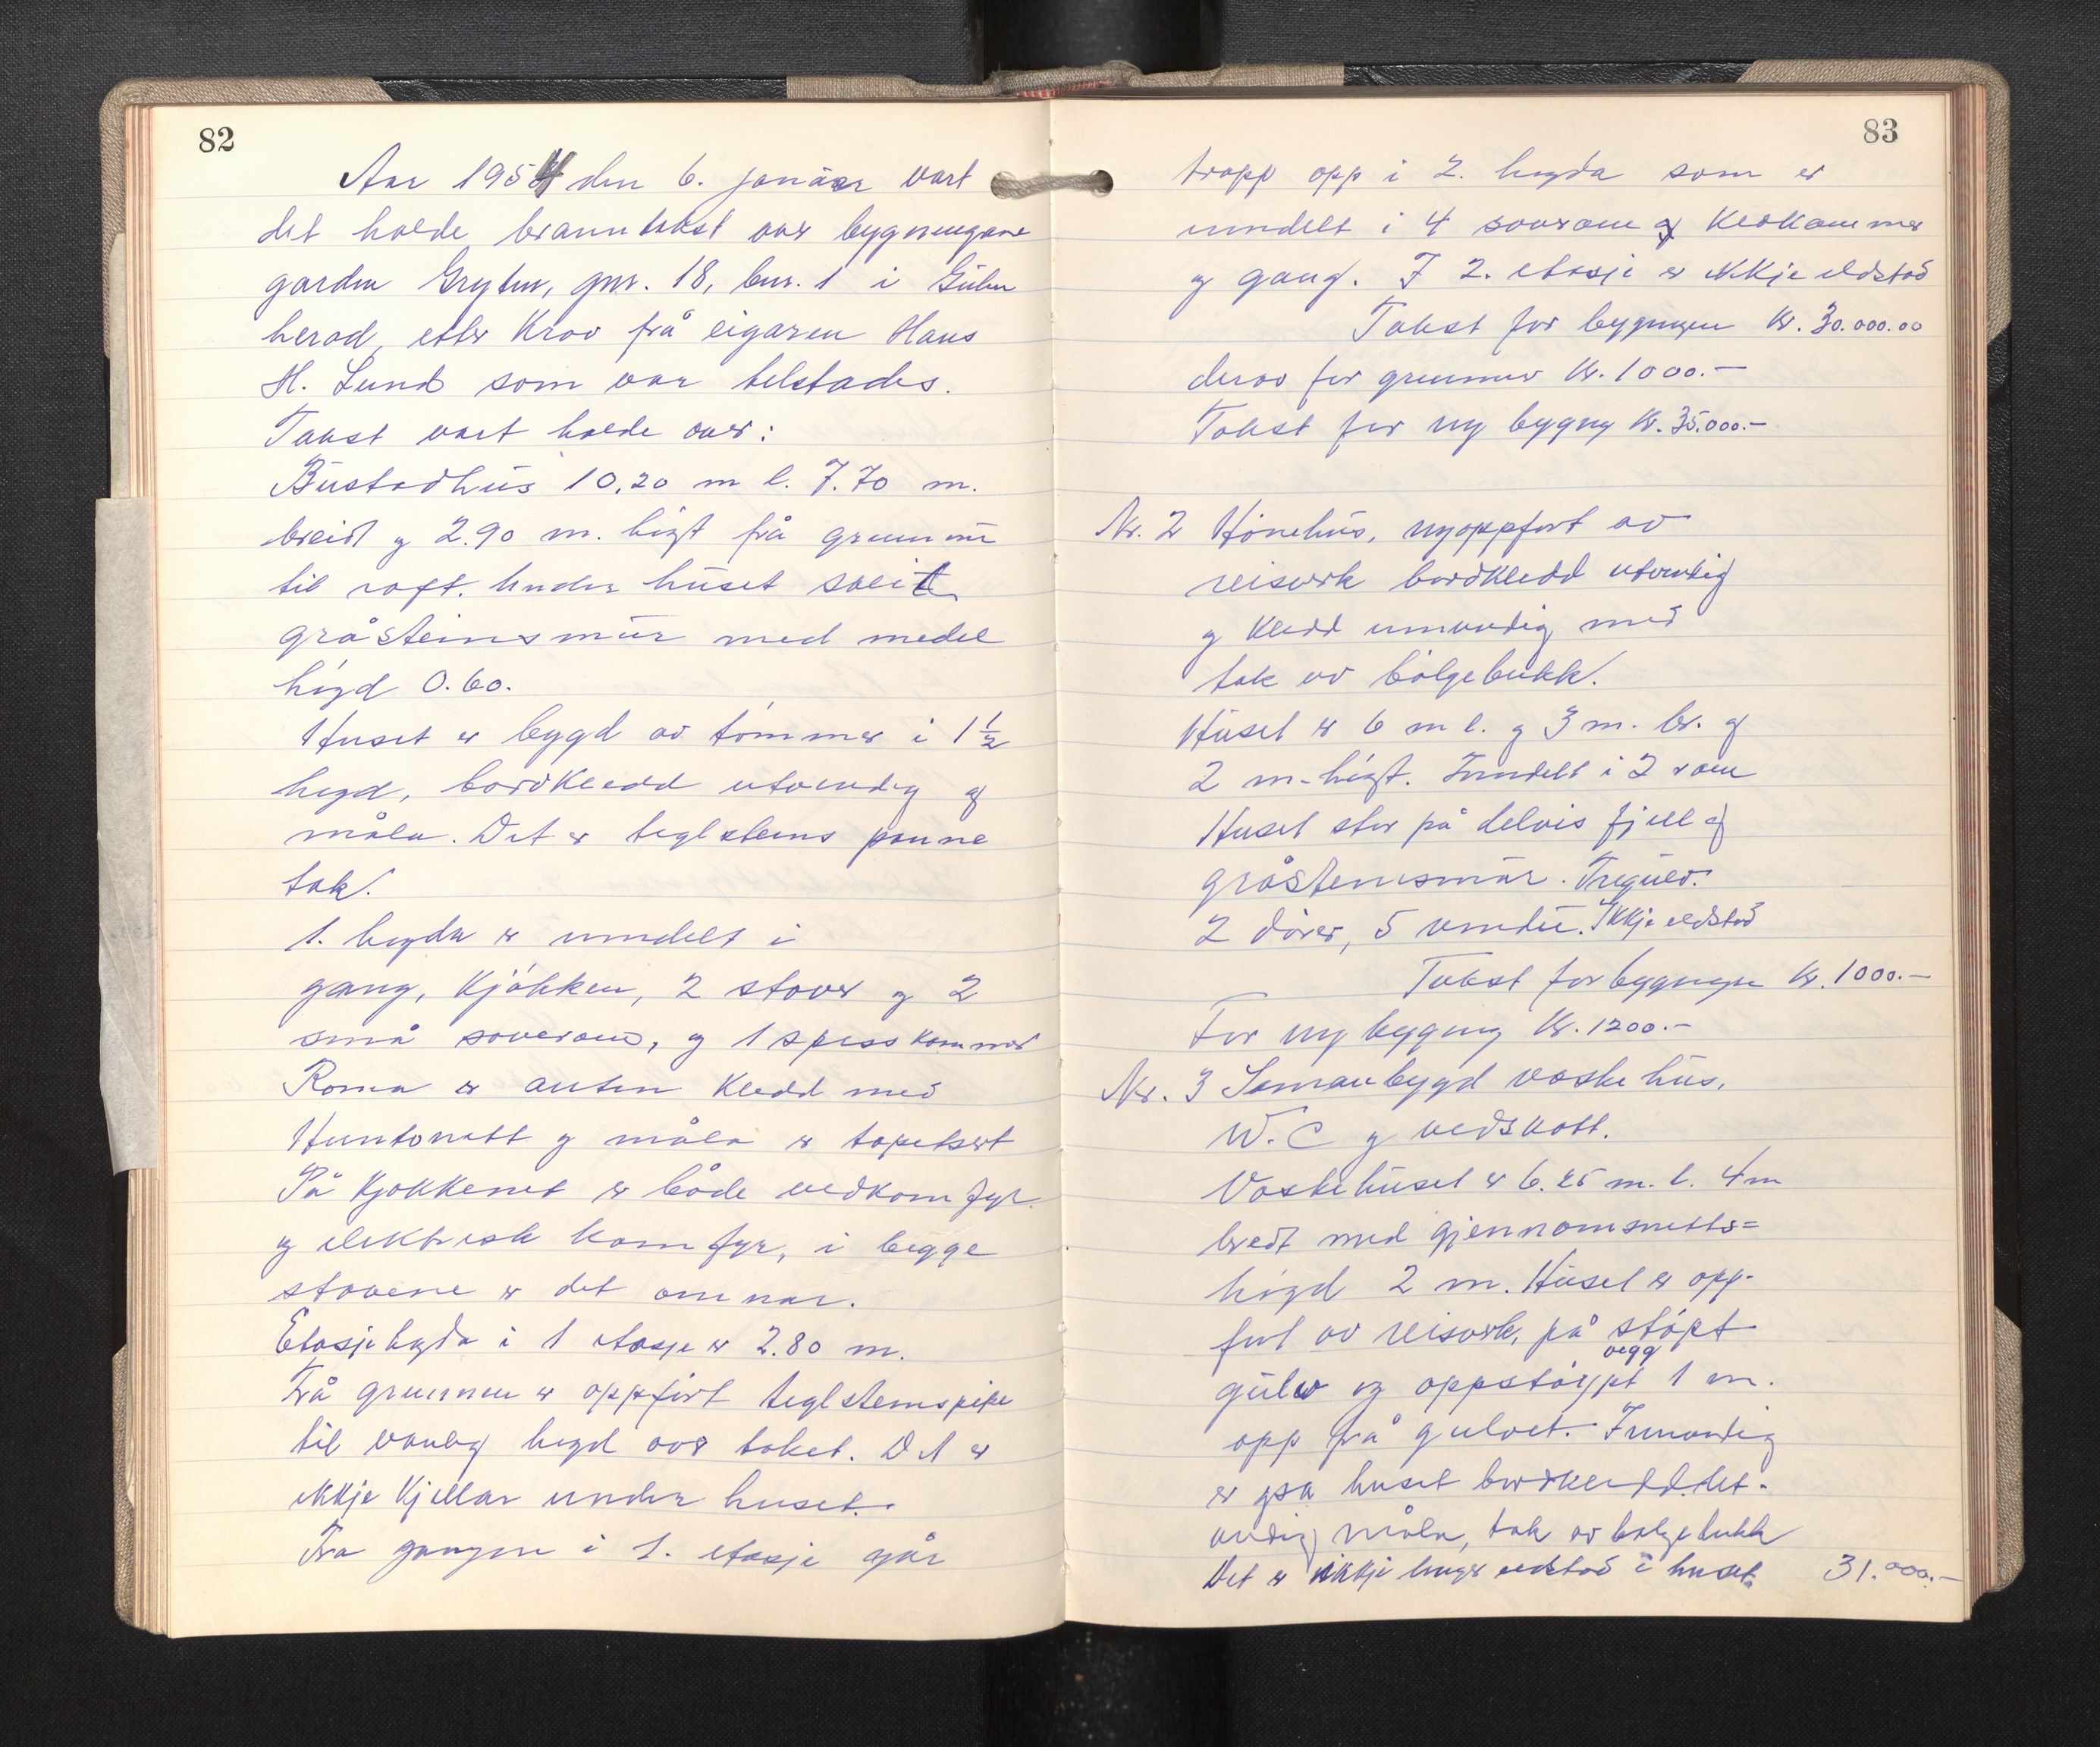 82
Aar 1954 den 6. januar vart
det halde branntakst over bygningane
garden Gryten, gnr. 18, bnr. 1 i Gulen
herad, etter krav frå eigaren Hans
H. Lund som var tilstades.
Takst vart halde over:
Bustadhus 10.20 m l. 7.70 m.
breidt og 2.90 m. högt frå grunnmur
til raft. Under huset solid
gråsteinsmur med medel
högd 0.60.
Huset er bygd av tömmer i 1 1/2
högd, bordkledd utvendig og
måla. Det er teglsteins panne
tak.
1. högda er inndelt i
gang, kjökken, 2 stover og 2
små soverom, og 1 spisskammer
Roma er anten kledd med
Huntonett og måla er tapetsert
På kjøkkenet er både vedkomfyr
og elektrisk komfyr, i begge
stovene er det omnar.
Etasjehøgda i 1 etasje er 2.80 m.
Frå grunnen er oppført teglsteinspipe
til vanleg høgd over taket. Det er
ikkje kjellar under huset.
Fra gangen i 1. etasje går
83
tropp opp i 2. høgda som er
inndelt i 4 soverom og kledkammer
og gang. I 2. etasje er ikkje eldstad
Takst for bygningen kr. 30.000.00
derav for grunnmur kr. 1000.-
Takst for ny bygning kr. 35.000.-
Nr. 2 Hönehus, nyoppfört av
reisverk bordkledd utvendig
og kledd innvendig med
tak av bölgeblikk.
Huset er 6 m l. og 3 m. br. og
2 m. högt. Inndelt i 2 rom
Huset står på delvis fjell og
gråsteinsmur. Tregulv.
2 dörer, 5 vindu. Ikkje eldstad
Takst for bygningen kr. 1000.-
For ny bygning kr. 1200.-
Nr. 3 Samanbygd vaskehus,
W.C og vedskott.
Vaskehuset er 6.25 m. l. 4 m
bredt med gjennomsnitts=
högd 2 m. Huset er opp-
fört av reisverk, på stöpt
vegg
gulv og oppstöypt 1 m.
opp frå gulvet. Innvendig
er huset bordkledd. Ut-
vendig måla, tak av bølgeblikk
Det er ikkje eldstad i huset. 31.000.-